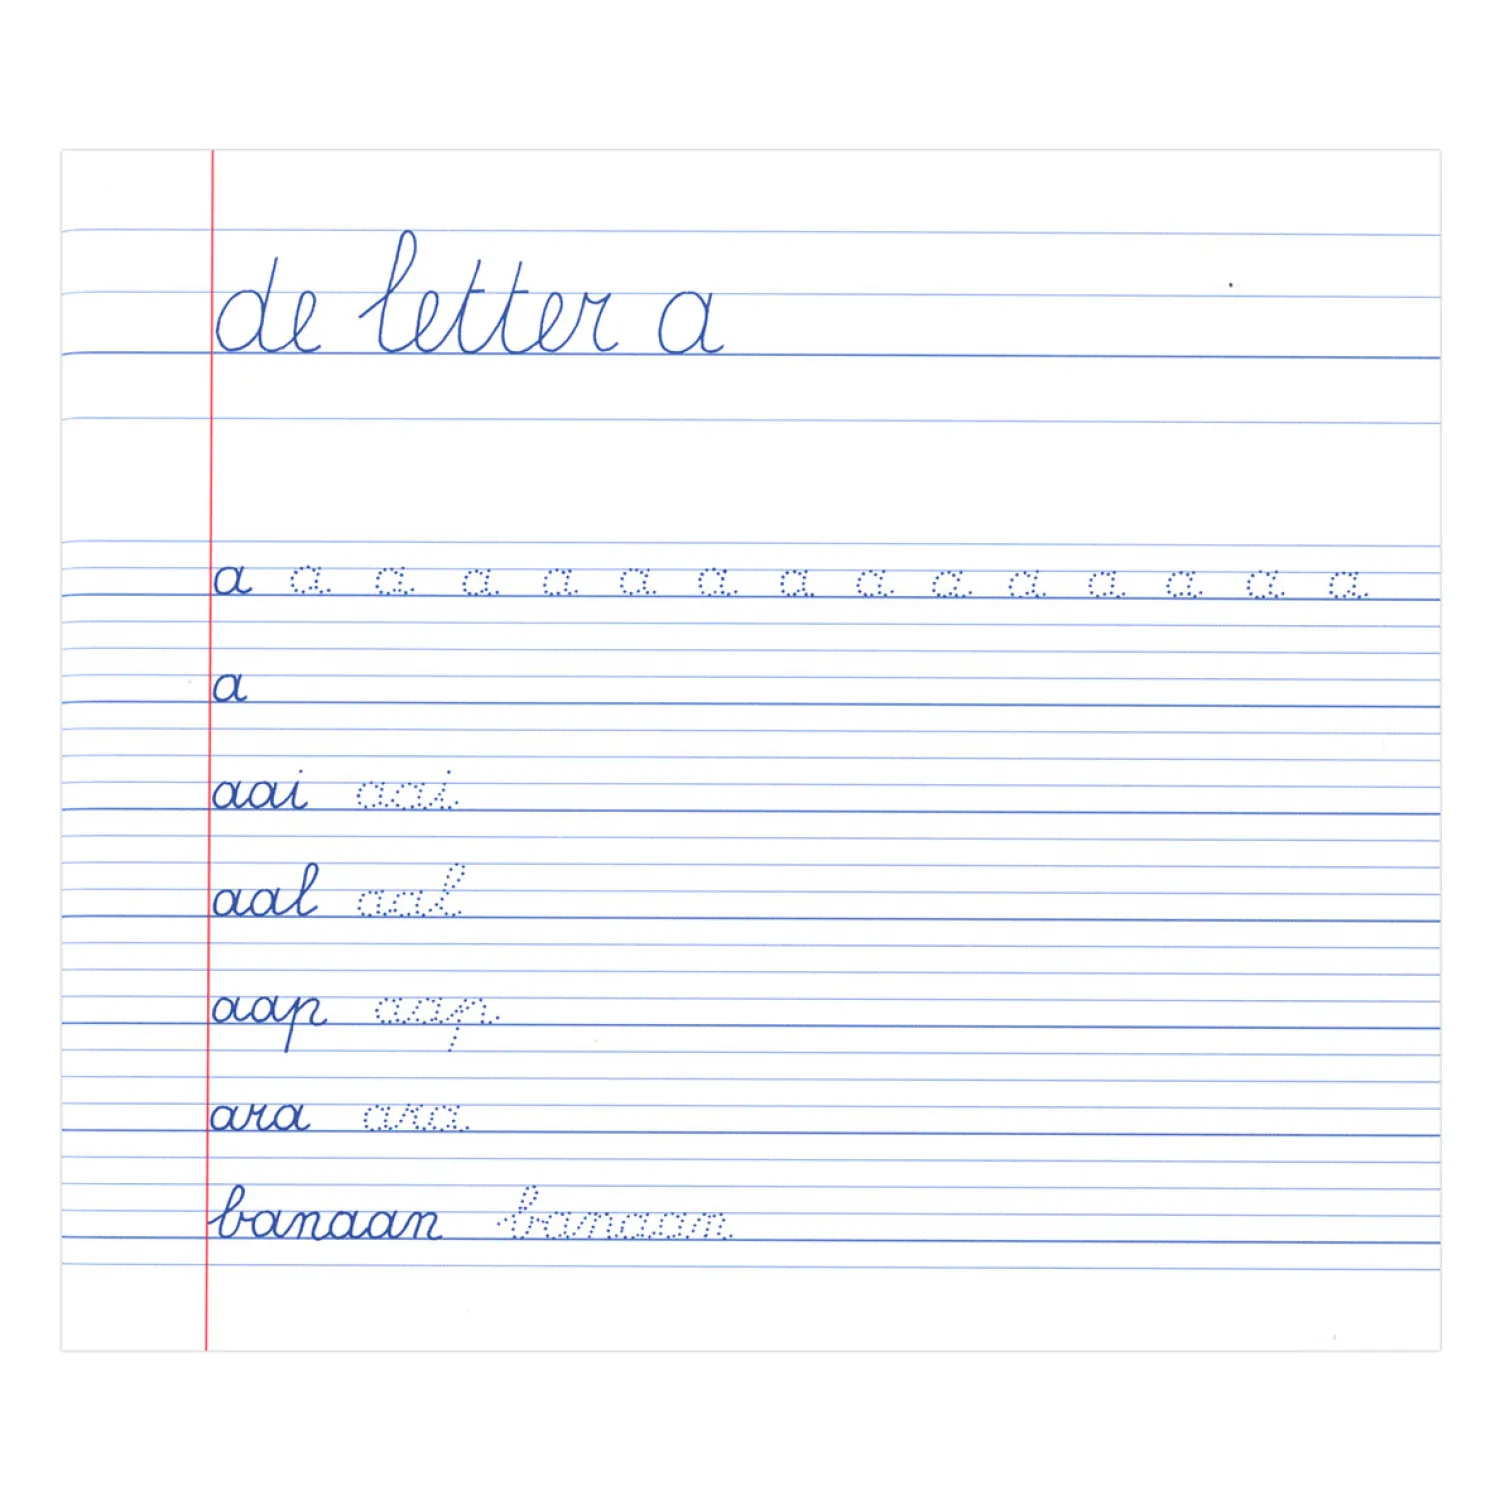 de letter a
a a a a a a a a a a a a a a a
a
aai aai
aal aal
aap aap
ara ara
banaan banaan